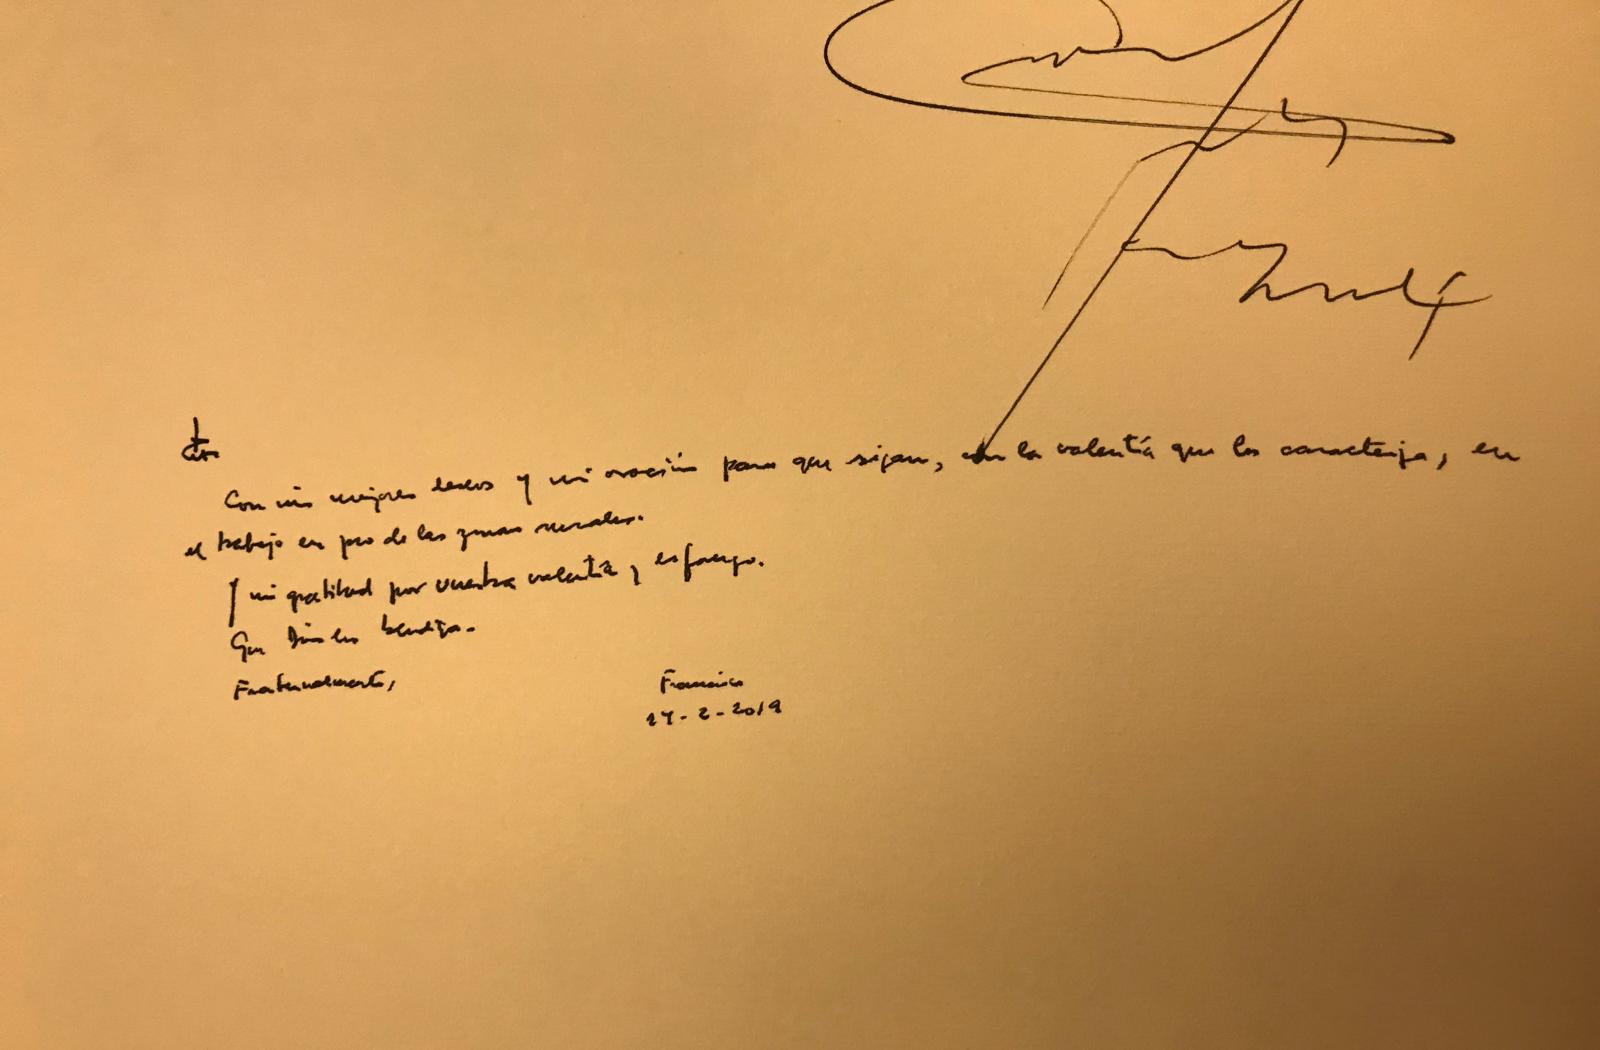 Con mis mejores deseos y mi oración para que sigan, con la valentía que los caracteriza, en
el trabajo en pro de las zonas rurales.
Y mi gratitud por vuestra valentía y esfuerzo.
Que Dios los bendiga.
Fraternalmente,
Francisco
14-2-2019